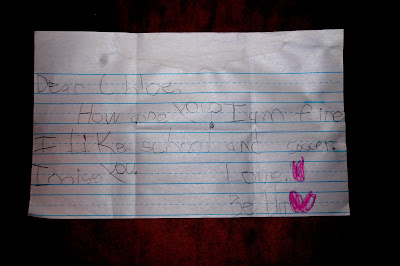 Dear Chloe,
How are you? I am fine.
I like school and soccer.
I miss you. Love,